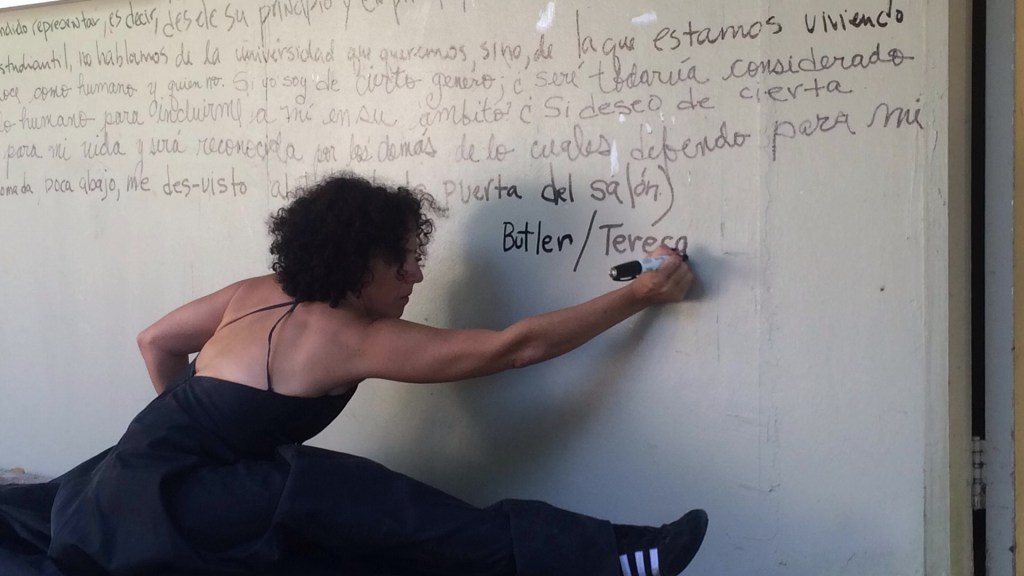 representar, es decir, desde su principio y en
estudiantil, no hablamos de la universidad que queremos, sino, de la que estamos viviendo
como humano y quien no. Si yo soy de cierto genero; ¿ seré todavía considerado
humano para incluirme a mi en su ámbito ¿ Si deseo de cierta
para mi vida y será reconocida por los demás de lo cuales dependo para mi
poca abajo, me des-visto puerta del salón)
Butler/Teresa